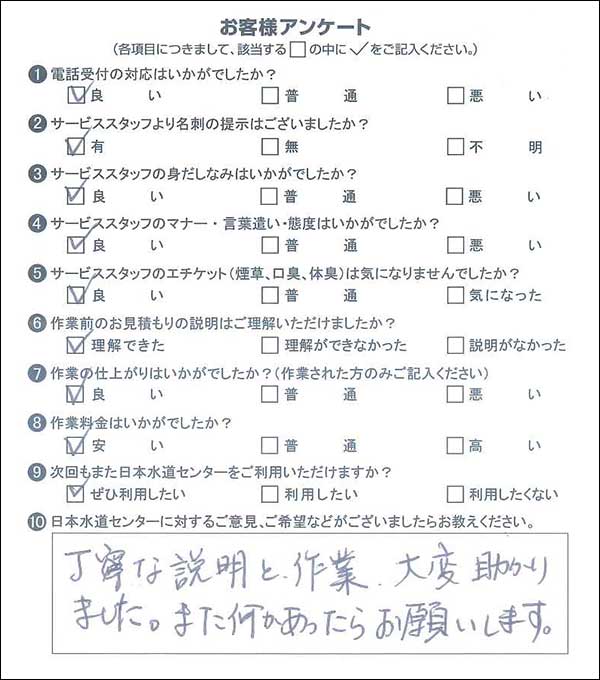 お客様アンケート
(各項目につきまして、該当する□の中に✓をご記入ください。)
❶電話受付の対応はいかがでしたか?
☑良　い　□普　通　□悪　い
❷サービススタッフより名刺の提示はございましたか?
☑有　□無　□不　明
❸サービススタッフの身だしなみはいかがでしたか?
☑良　い　□普　通　□悪　い
❹サービススタッフのマナー・言葉遣い・態度はいかがでしたか?
☑良　い　□普　通　□悪　い
❺サービススタッフのエチケット(煙草、口臭、体臭)は気になりませんでしたか?
☑良　い　□普　通　□気になった
❻作業前のお見積もりの説明はご理解いただけましたか?
☑理解できた　□理解ができなかった　□説明がなかった
❼作業の仕上がりはいかがでしたか?(作業された方のみご記入ください)
☑良　い　□普　通　□悪　い
❽作業料金はいかがでしたか?
☑安　い　□普　通　□高　い
❾次回もまた日本水道センターをご利用いただけますか?
☑ぜひ利用したい　□利用したい　□利用したくない
❿日本水道センターに対するご意見、ご希望などがございましたらお教えください。
丁寧な説明と、作業、大変助かり
ました。また何かあったらお願いします。